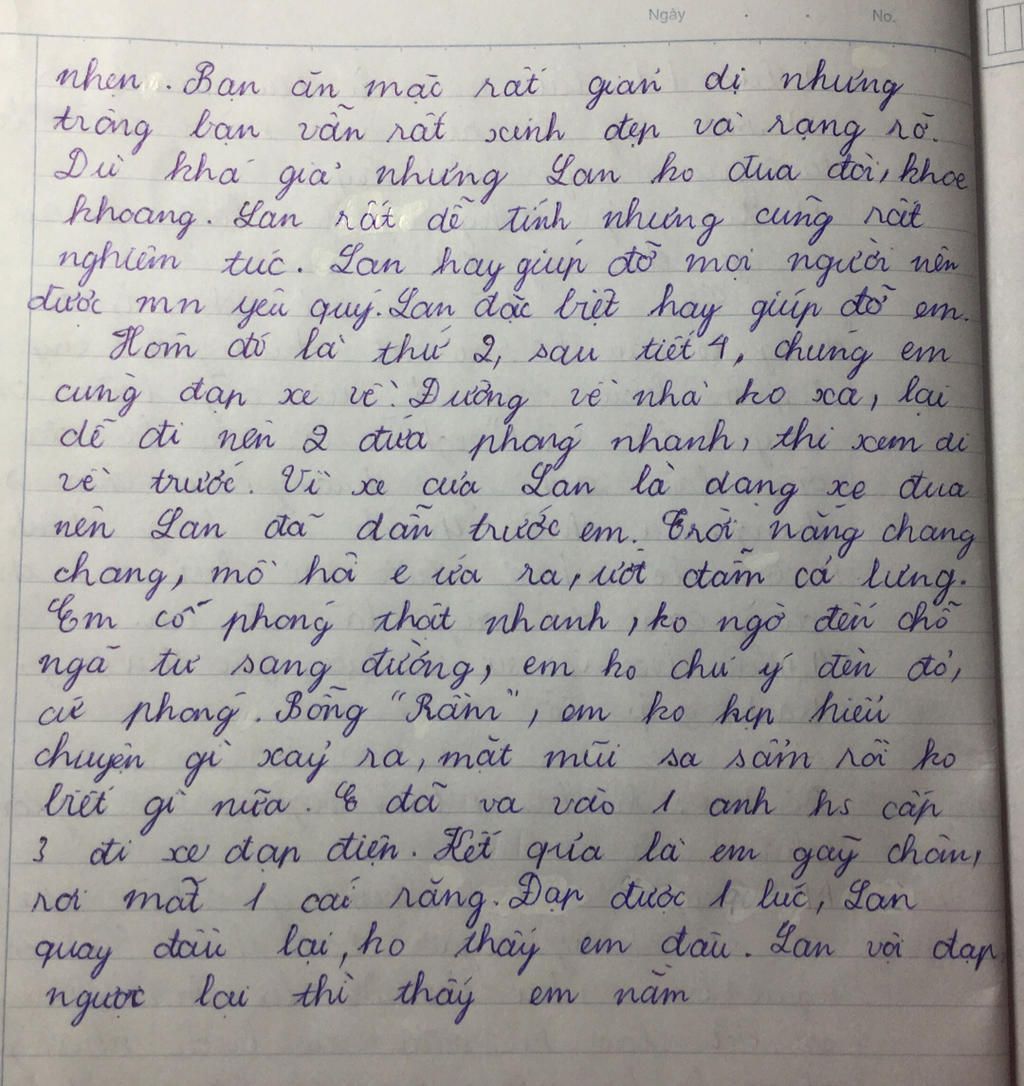 Ngày . . No.
nhen. Bạn ăn mặc rất giản dị nhưng
trông bạn vẫn rất xinh đẹp và rạng rỡ.
Dù khá giả nhưng Lan ko đua đòi, khoe
khoang. Lan rất dễ tính nhưng cũng rất
nghiêm túc. Lan hay giúp đỡ mọi người nên
được mn yêu quý. Lan đặc biệt hay giúp đỡ em.
Hôm đó là thứ 2, sau tiết 4, chúng em
cùng đạp xe về. Đường về nhà ko xa, lại
dễ đi nên 2 đứa phóng nhanh, thi xem ai
về trước. Vì xe của Lan là dạng xe đua
nên Lan đã dẫn trước em. Trời nắng chang
chang, mồ hôi e ứa ra, ướt đẫm cả lưng.
Em cố phóng thật nhanh, ko ngờ đến chỗ
ngã tư sang đường, em ko chú ý đèn đỏ,
cứ phóng. Bỗng "Rầm", em ko kịp hiểu
chuyện gì xảy ra, mặt mũi sa sầm rồi ko
biết gì nữa. E đã va vào 1 anh hs cấp
3 đi xe đạp điện. Kết qủa là em gãy chân,
rơi mất 1 cái răng. Đạp được 1 lúc, Lan
quay đầu lại, ko thấy em đâu. Lan vội đạp
ngược lại thì thấy em nằm